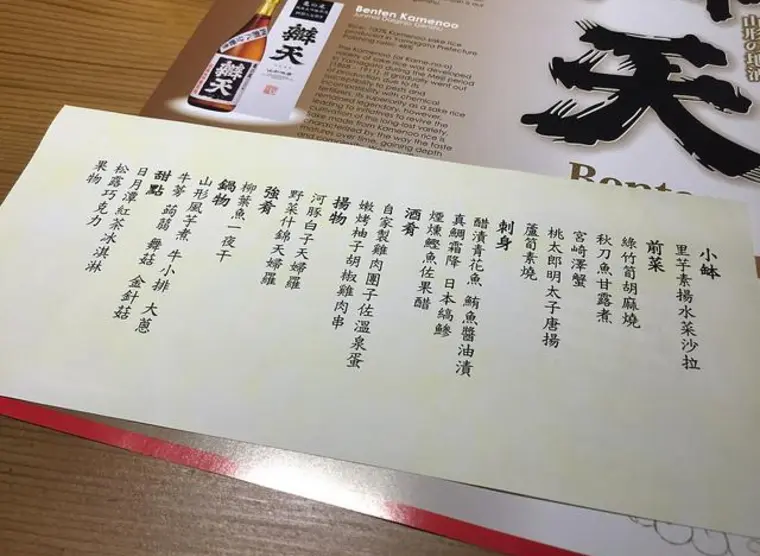 Benten Kamenoo
Junmai Daiginjo Genshu
Rice: 100% Kamenoo sake rice
produced in Yamagata Prefecture
Polishing ratio: 48%
The Kamenoo (or Kame-no-o)
variety of sake rice was developed
in Yamagata during the Meiji period
辯天
辯天
天
山形の地酒
小鉢
里芋素揚水菜沙拉
前菜
綠竹筍胡麻燒
秋刀魚甘露煮
宮崎澤蟹
桃太郎明太子唐揚
蘆筍素燒
刺身
醋漬青花魚 鮪魚醬油漬
真鯛霜降 日本縞鰺
煙燻鰹魚佐果醋
酒肴
自家製雞肉團子佐溫泉蛋
嫩烤柚子胡椒雞肉串
揚物
河豚白子天婦羅
野菜什錦天婦羅
強肴
柳葉魚一夜干
鍋物
山形風芋煮 牛小排 大蔥
牛蒡 蒟蒻 舞菇 金針菇
甜點
日月潭紅茶冰淇淋
松露巧克力
果物